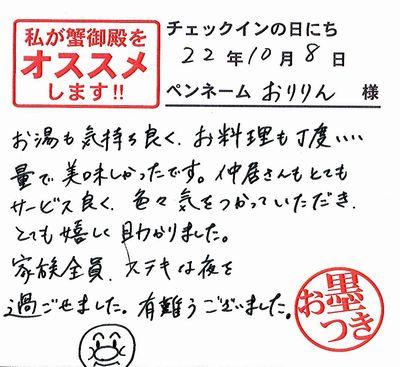 私が蟹御殿を
オススメ
します!!
チェックインの日にち
22年10月8日
ペンネーム おりりん 様
お湯も気持ち良く、お料理も丁度いい
量で美味しかったです。仲居さんもとても
サービス良く、色々気をつかっていただき、
とても嬉しく助かりました。
家族全員、ステキな夜を
過ごせました。有難うございました。
お墨つき